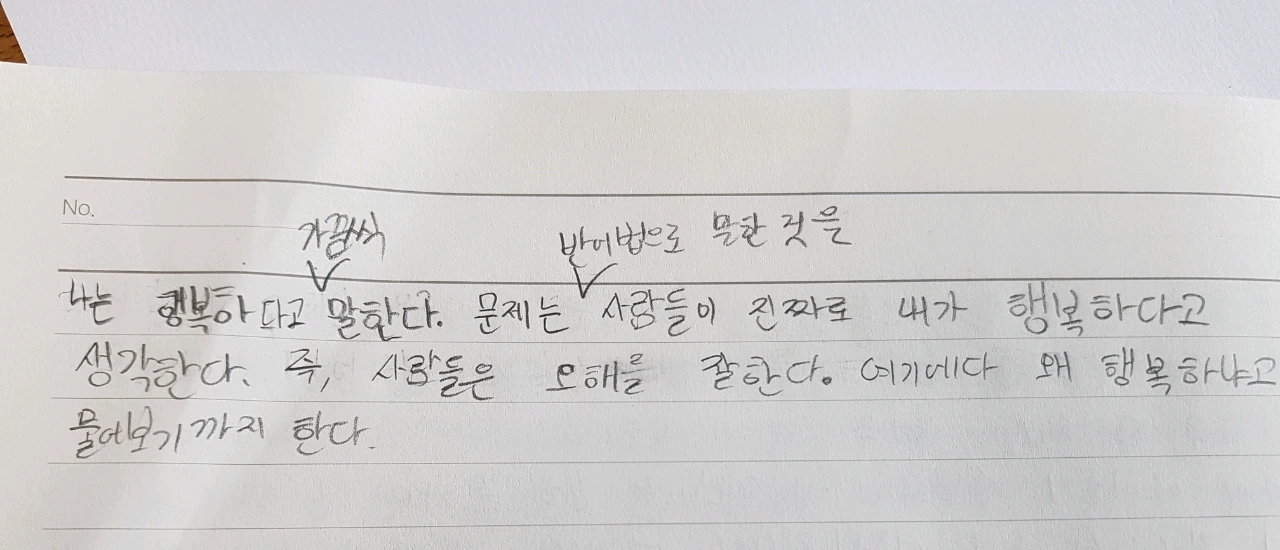 No.
가끔씩 반어법으로 말한 것을
나는 행복하다고 말한다. 문제는 사람들이 진짜로 내가 행복하다고
생각한다. 즉, 사람들은 오해를 잘한다. 여기에다 왜 행복하냐고
물어보기까지 한다.